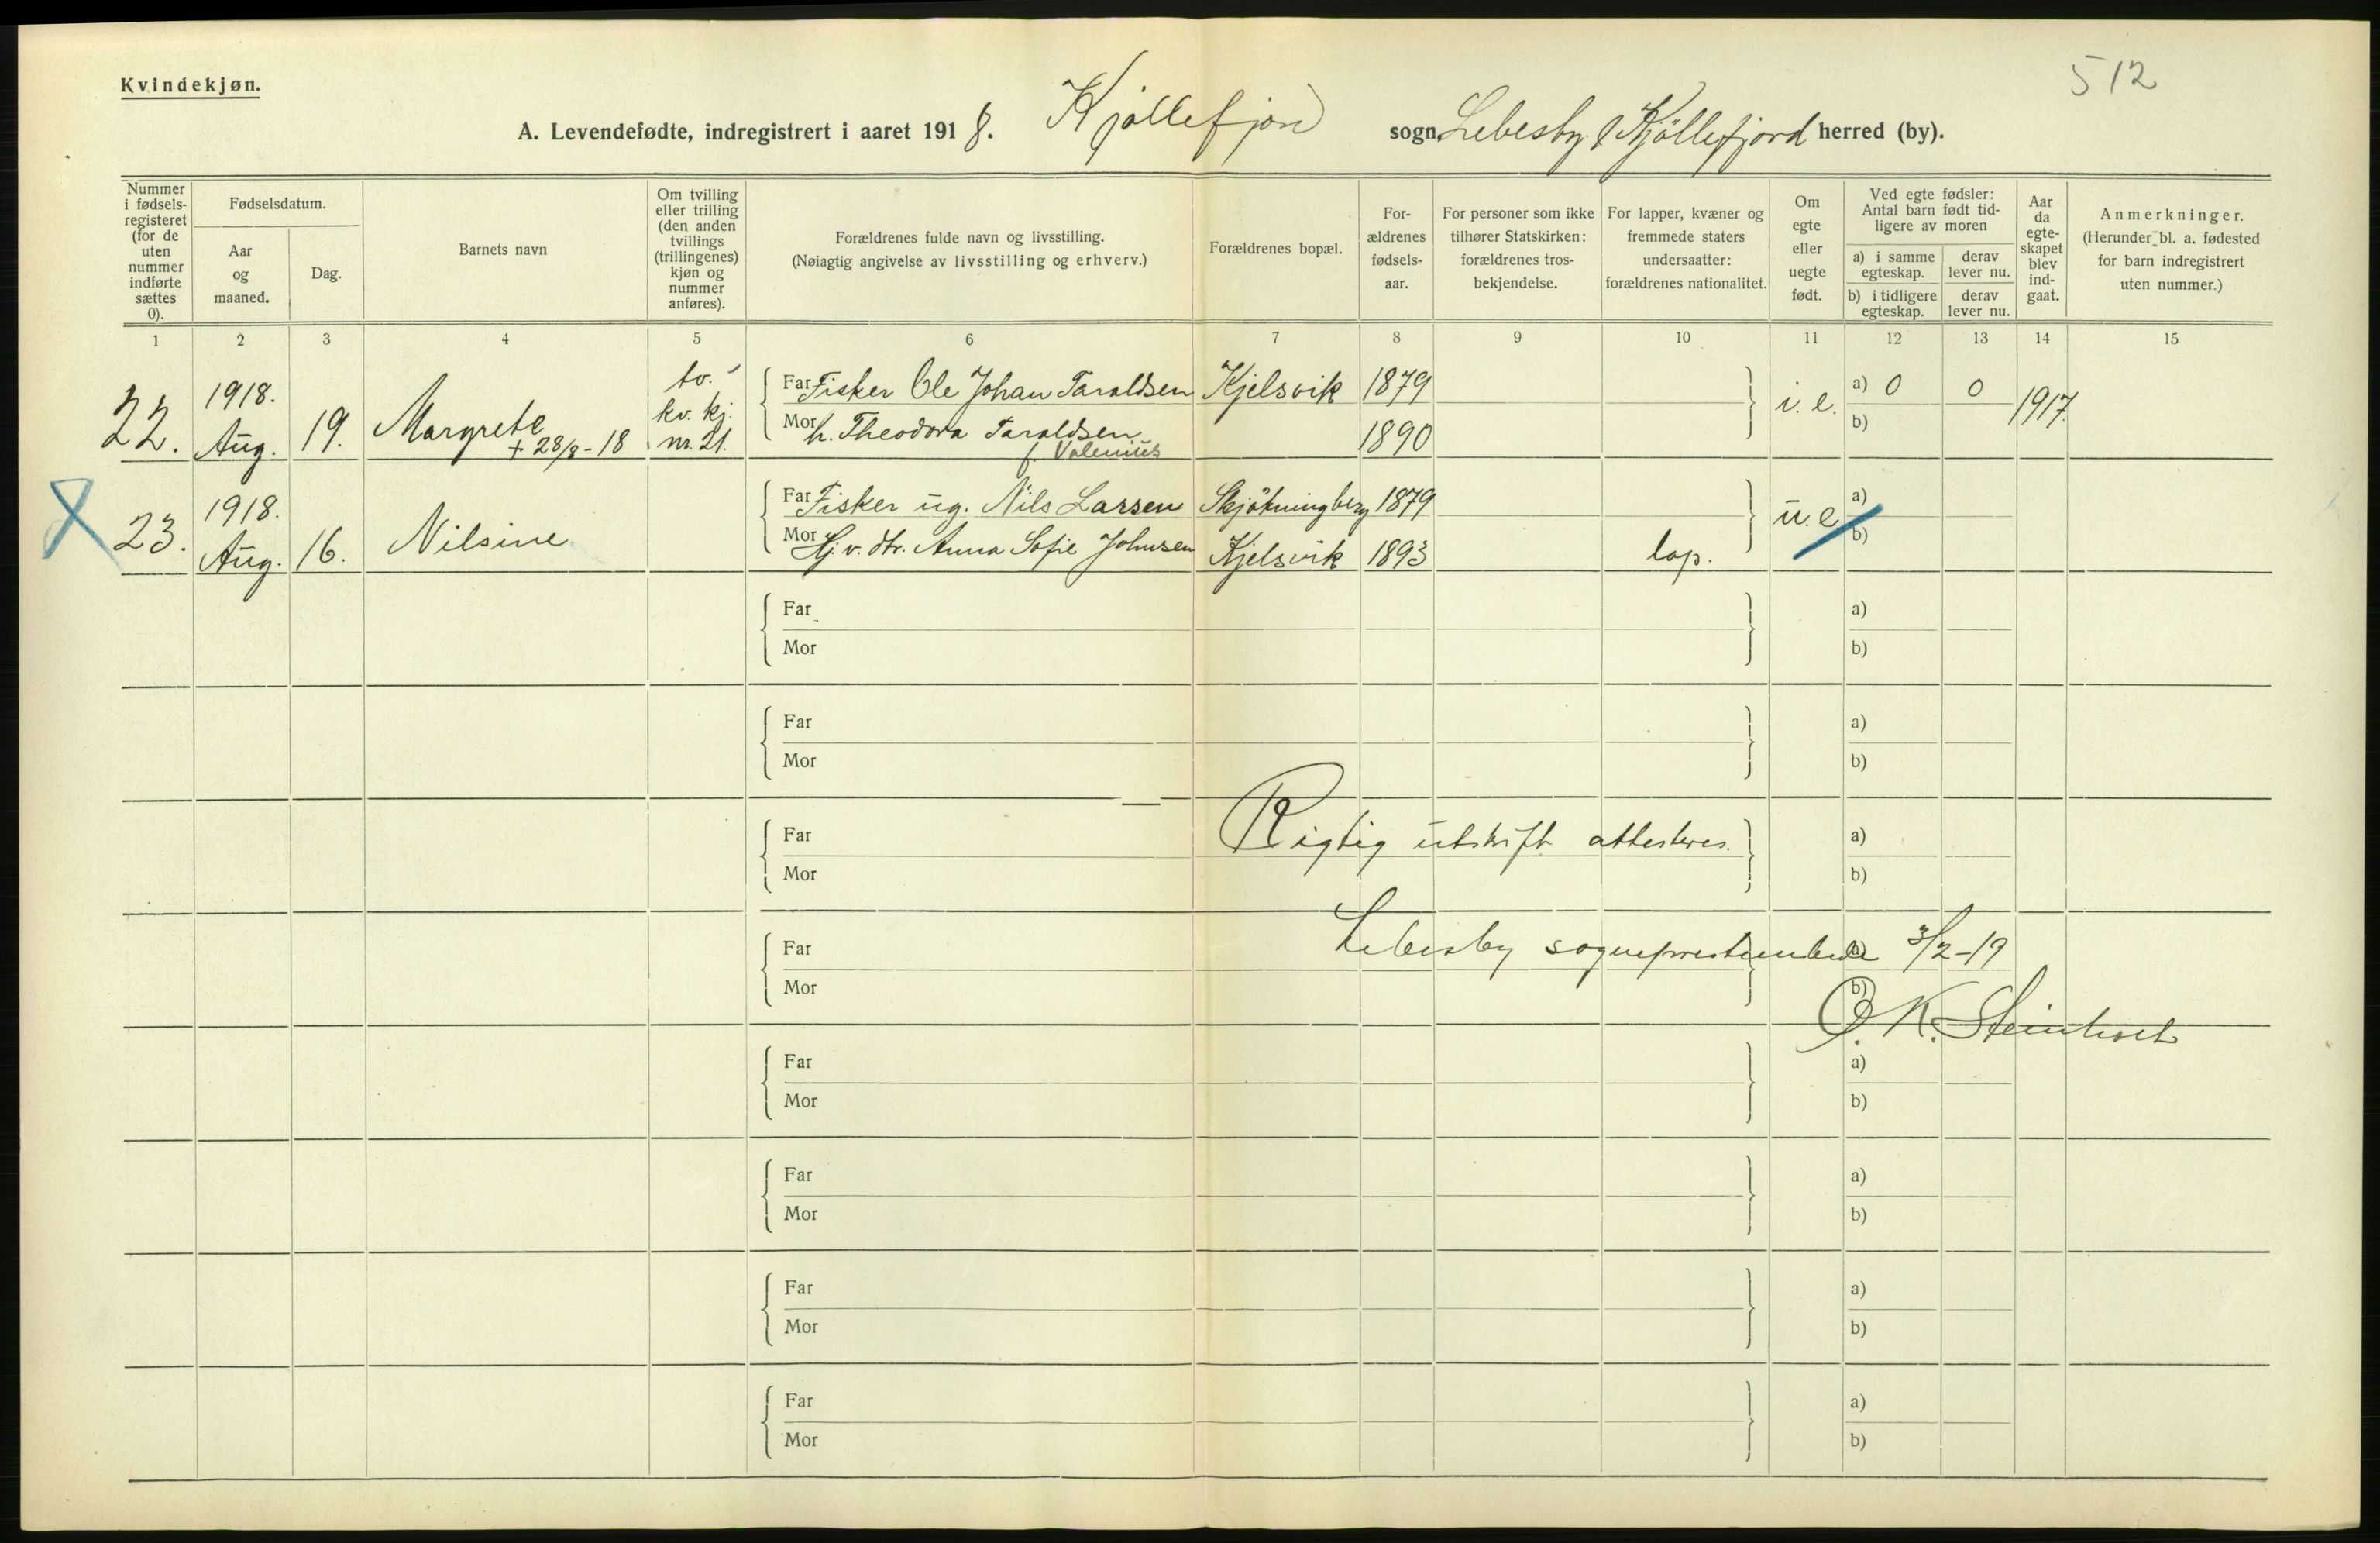 512
Kvindekjøn.
A. Levendefødte, indregistrert i aaret 1918. Kjøllefjord sogn, Lebesby & Kjøllefjord herred (by).
Nummer i fødselsregisteret (for de uten nummer indførte sættes 0).
Fødselsdatum.
Aar og maaned.
Dag.
Barnets navn
Om tvilling eller trilling (den anden tvillings (trillingenes) kjøn og nummer anføres).
Forældrenes fulde navn og livsstilling.
(Nøiagtig angivelse av livsstilling og erhverv.)
Forældrenes bopæl.
Forældrenes fødselsaar.
For personer som ikke tilhører Statskirken: forældrenes trosbekjendelse.
For lapper, kvæner og fremmede staters undersaatter: forældrenes nationalitet.
Om egte eller uegte født.
Ved egte fødsler: Antal barn født tidligere av moren
a) i samme egteskap.
derav lever nu.
b) i tidligere egteskap.
derav lever nu.
Aar da egteskapet blev indgaat.
Anmerkninger.
(Herunder bl. a. fødested for barn indregistrert uten nummer.)
1 2 3 4 5 6 7 8 9 10 11 12 13 14 15
22. 1918. Aug. 19. Margrete + 28/8-18 tv. kv. kj. nr. 21.
Far Fisker Ole Johan Taraldsen Kjelsvik 1879 i. e. a) 0 0 1917.
Mor h. Theodora Taraldsen f. Valenius 1890 b)
23. 1918. Aug. 16. Nilsine
Far Fisker ug. Nils Larsen Skjøtningberg 1879 u. e. a)
Mor Hj. v. dtr. Anna Sofie Johnsen Kjelsvik 1893 lap. b)
Far a)
Mor b)
Far a)
Mor b)
Far Rigtig utskrift attesteres. a)
Mor b)
Far Lebesby sogneprestembede 3/2-19
Mor b)
O. K. Steinholt
Far a)
Mor b)
Far a)
Mor b)
Far a)
Mor b)
Far a)
Mor b)